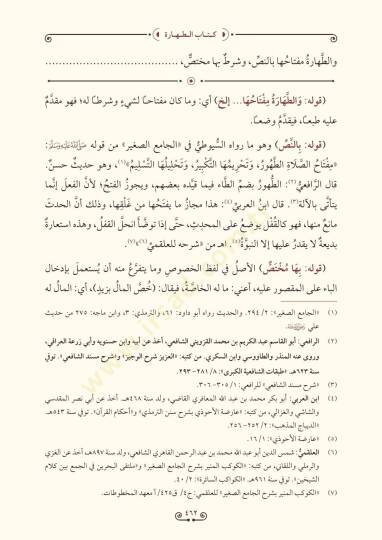 كتاب الطهارة
والطَّهارةُ مفتاحُها بالنَّصِّ، وشرطٌ بها مختصٌّ، ......................................
(قوله: وَالطَّهَارَةُ مِفْتَاحُهَا... إلخ) أي: وما كان مفتاحًا لشيءٍ وشرطًا له؛ فهو مقدَّمٌ
عليه طبعًا، فيقدَّمُ وضعًا.
(قوله: بِالنَّصِّ) وهو ما رواه السُّيوطيُّ في «الجامع الصغير» من قوله ﷺ:
«مِفْتَاحُ الصَّلَاةِ الطُّهُورُ، وَتَحْرِيمُهَا التَّكْبِيرُ، وَتَحْلِيلُهَا التَّسْلِيمُ»(١)، وهو حديثٌ حسنٌ.
قال الرَّافعيُّ(٢): الطُّهورُ بضمِّ الطَّاء فيما قيَّده بعضهم، ويجوزُ الفتحُ؛ لأنَّ الفعلَ إنَّما
يتأتَّى بالآلة(٣). قال ابنُ العربيِّ(٤): هذا مجازُ ما يفتَحُها من غَلَقِها، وذلك أنَّ الحدثَ
مانعٌ منها، فهو كالقُفْلِ يوضعُ على المحدِث، حتَّى إذا توضَّأ انحلَّ القفلُ، وهذه استعارةٌ
بديعةٌ لا يقدرُ عليها إلا النبوَّةُ(٥). اهـ من «شرحه للعلقميِّ(٦)»(٧).
(قوله: بِهَا مُخْتَصٌّ) الأصلُ في لفظ الخصوصِ وما يتفرَّعُ منه أن يُستعملَ بإدخال
الباء على المقصور عليه، أعني: ما له الخاصَّةُ، فيقال: (خُصَّ المالُ بزيدٍ)، أي: المالُ له
(١) «الجامع الصغير»: ٢/ ٢٩٤. والحديث رواه أبو داود: ٦١، والترمذي: ٣، وابن ماجه: ٢٧٥ من حديث
علي
(٢) الرافعي: أبو القاسم عبد الكريم بن محمد القزويني الشافعي، أخذ عن أبيه وابن حسنويه وأبي زرعة العراقي،
وروى عنه المنذر والطاووسي وابن السكري. من كتبه: «العزيز شرح الوجيز» و«شرح مسند الشافعي». توفي
سنة ٦٢٣هـ. «طبقات الشافعية الكبرى»: ٨/ ٢٨١ - ٢٩٣.
(٣) «شرح مسند الشافعي» للرافعي: ١/ ٣٠٥-٣٠٦.
(٤) ابن العربي: أبو بكر محمد بن عبد الله المعافري القاضي، ولد سنة ٤٦٨هـ. أخذ عن أبي نصر المقدسي
والشاشي والغزالي، من كتبه: «عارضة الأحوذي بشرح سنن الترمذي» و«أحكام القرآن». توفي سنة ٥٤٣هـ.
«الديباج المذهب»: ٢/ ٢٥٢-٢٥٦.
(٥) «عارضة الأحوذي»: ١/ ١٦.
(٦) العلقميُّ: شمس الدين أبو عبد الله محمد بن عبد الرحمن القاهري الشافعي، ولد سنة ٨٩٧هـ، أخذ عن الغزي
والرملي واللقاني، من كتبه: «الكوكب المنير بشرح الجامع الصغير» و«ملتقى البحرين في الجمع بين كلام
الشيخين». توفي سنة ٩٦١هـ. «الكواكب السائرة»: ٢/ ٤٠.
(٧) «الكوكب المنير بشرح الجامع الصغير» للعلقمي: ج٤/ ق٤٢٥/ أ معهد المخطوطات.
٤٦٢